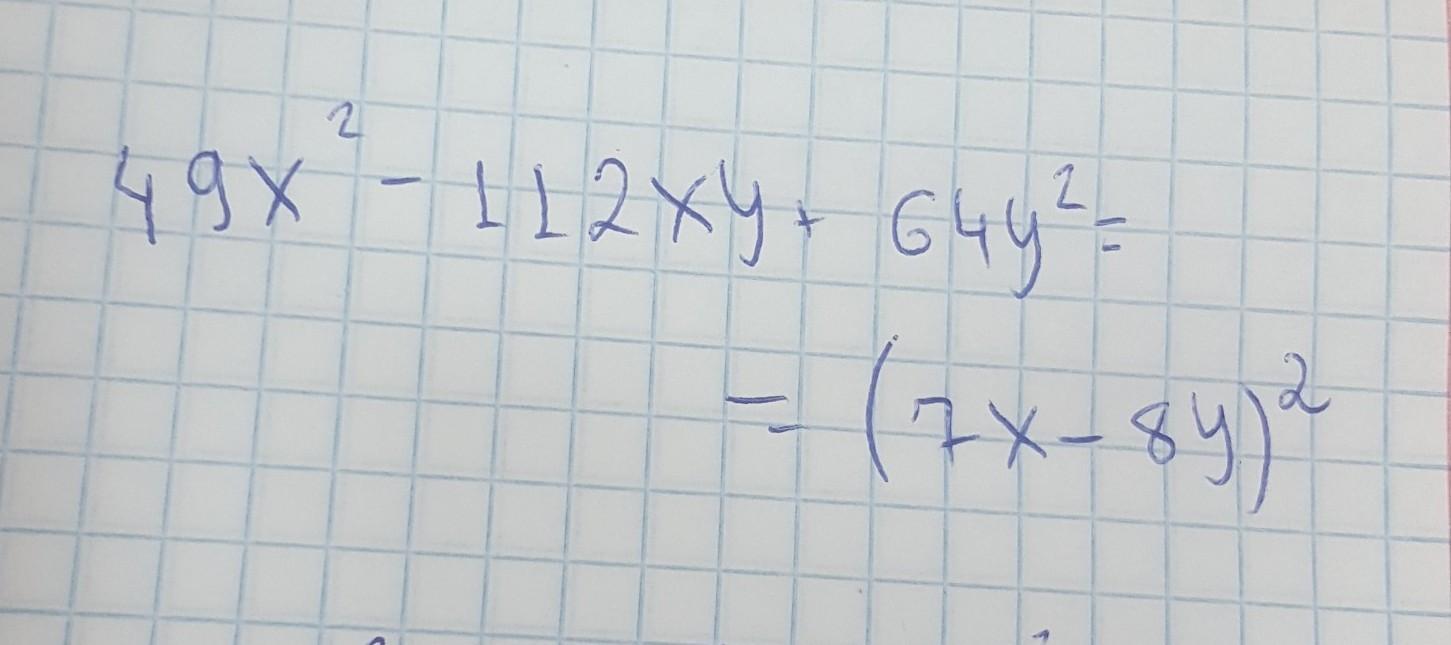 49x² - 112xy + 64y² =
= (7x - 8y)²